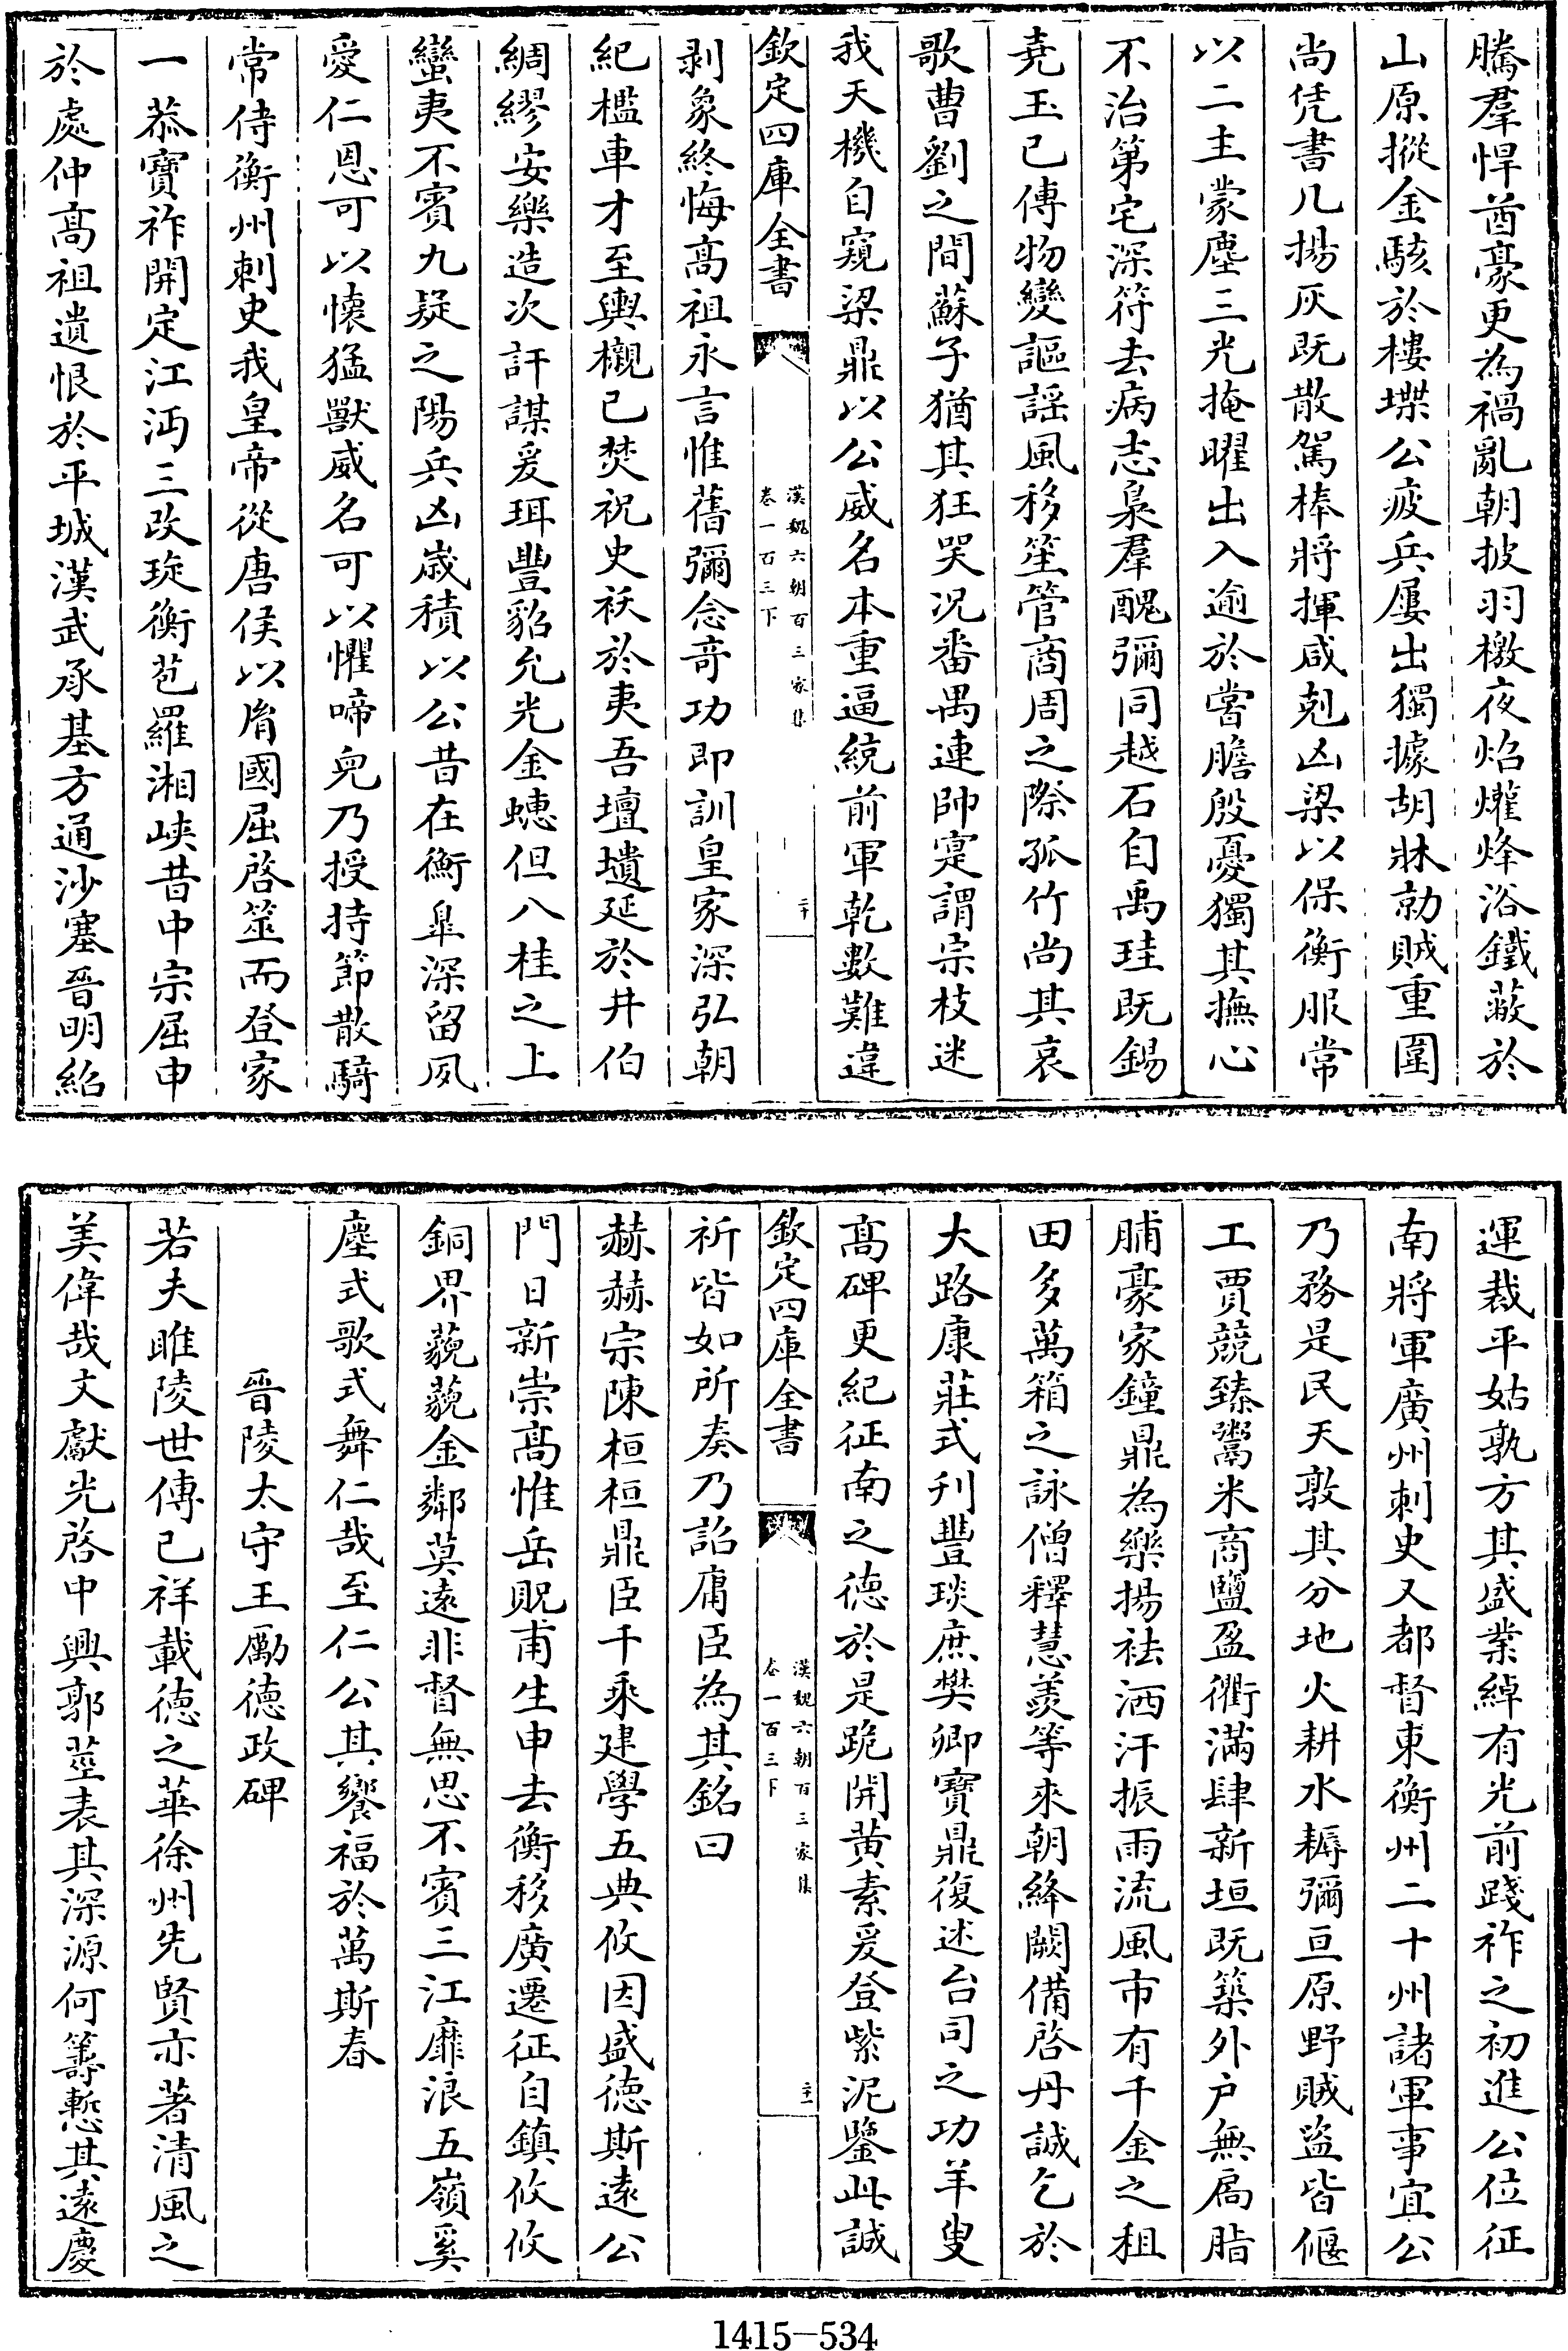 騰羣悍酋豪更為禍亂朝披羽檄夜焰爟烽浴鐵蔽於
山原摐金駭於樓堞公疲兵屢出獨據胡牀勍賊重圍
尚凭書几揚灰既散駕棒將揮咸剋凶梁以保衡服常
以二主蒙塵三光掩曜出入逾於嘗膽殷憂獨其撫心
不治第宅深符去病志梟羣醜彌同越石自禹珪既錫
堯玉已傳物變謳謠風移笙管商周之際孤竹尚其哀
歌曹劉之間蘇子猶其狂哭况番禺連帥寔謂宗枝迷
我天機自窺梁鼎以公威名本重逼統前軍乾數難違
欽定四庫全書
漢魏六朝百三家集
卷一百三下
二十
剥象終悔髙祖永言惟舊彌念竒功即訓皇家深弘朝
紀檻車才至輿櫬已焚祝史祅於夷吾壇墠延於井伯
綢繆安樂造次訐謀爰珥豐貂允光金蟪但八桂之上
蠻夷不賓九疑之陽兵凶歳積以公昔在衡臯深留夙
愛仁恩可以懷猛獸威名可以懼啼兒乃授持節散騎
常侍衡州刺史我皇帝從唐侯以膺國屈啓筮而登家
一恭寳祚開定江沔三改璇衡苞羅湘峽昔中宗屈申
於處仲髙祖遺恨於平城漢武承基方通沙塞晉明紹
運裁平姑孰方其盛業綽有光前踐祚之初進公位征
南將軍廣州刺史又都督東衡州二十州諸軍事宜公
乃務是民天敦其分地火耕水耨彌亘原野賊盜皆偃
工賈競臻鬻米商鹽盈衢滿肆新垣既築外户無扄脂
脯豪家鐘鼎為樂揚袪洒汗振雨流風市有千金之租
田多萬箱之詠僧釋慧羡等來朝絳闕備啓丹誠乞於
大路康莊式刋豐琰庶樊卿寳鼎復述台司之功羊叟
髙碑更紀征南之徳於是跪開黄素爰登紫泥鑒此誠
欽定四庫全書
漢魏六朝百三家集
卷一百三下
二十一
祈皆如所奏乃詔庸臣為其銘曰
赫赫宗陳桓桓鼎臣千乘建學五典攸因盛徳斯逺公
門日新崇髙惟岳貺甫生申去衡移廣遷征自鎮攸攸
銅界藐藐金鄰莫逺非督無思不賓三江靡浪五嶺奚
塵式歌式舞仁哉至仁公其饗福於萬斯春
晉陵太守王勵徳政碑
若夫睢陵世傳已祥載徳之華徐州先賢亦著清風之
美偉哉文獻光啓中興郭莖表其深源何籌慙其逺慶
1415-534